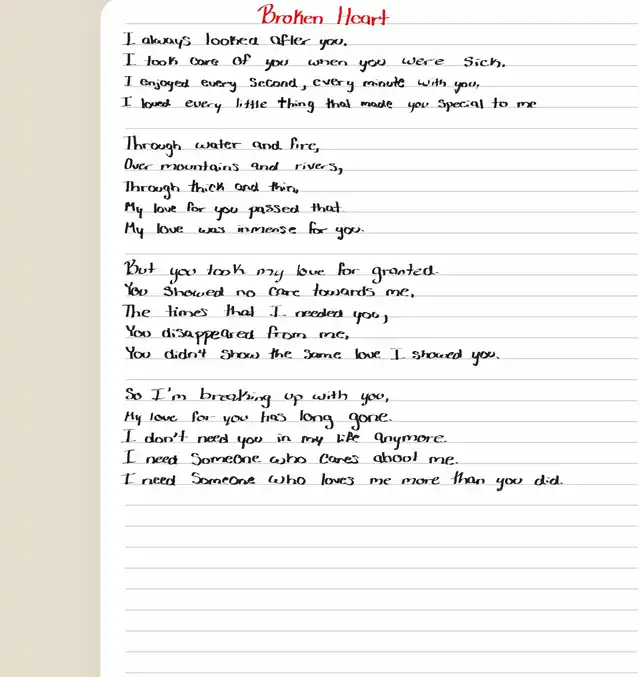 Broken Heart
I always looked after you.
I took care of you when you were sick.
I enjoyed every second, every minute with you,
I loved every little thing that made you special to me
Through water and fire,
Over mountains and rivers,
Through thick and thin,
My love for you passed that
My love was inmense for you.
But you took my love for granted.
You showed no care towards me,
The times that I needed you,
You disappeared from me,
You didn't show the same love I showed you.
So I'm breaking up with you,
My love for you has long gone.
I don't need you in my life anymore.
I need someone who cares about me.
I need someone who loves me more than you did.